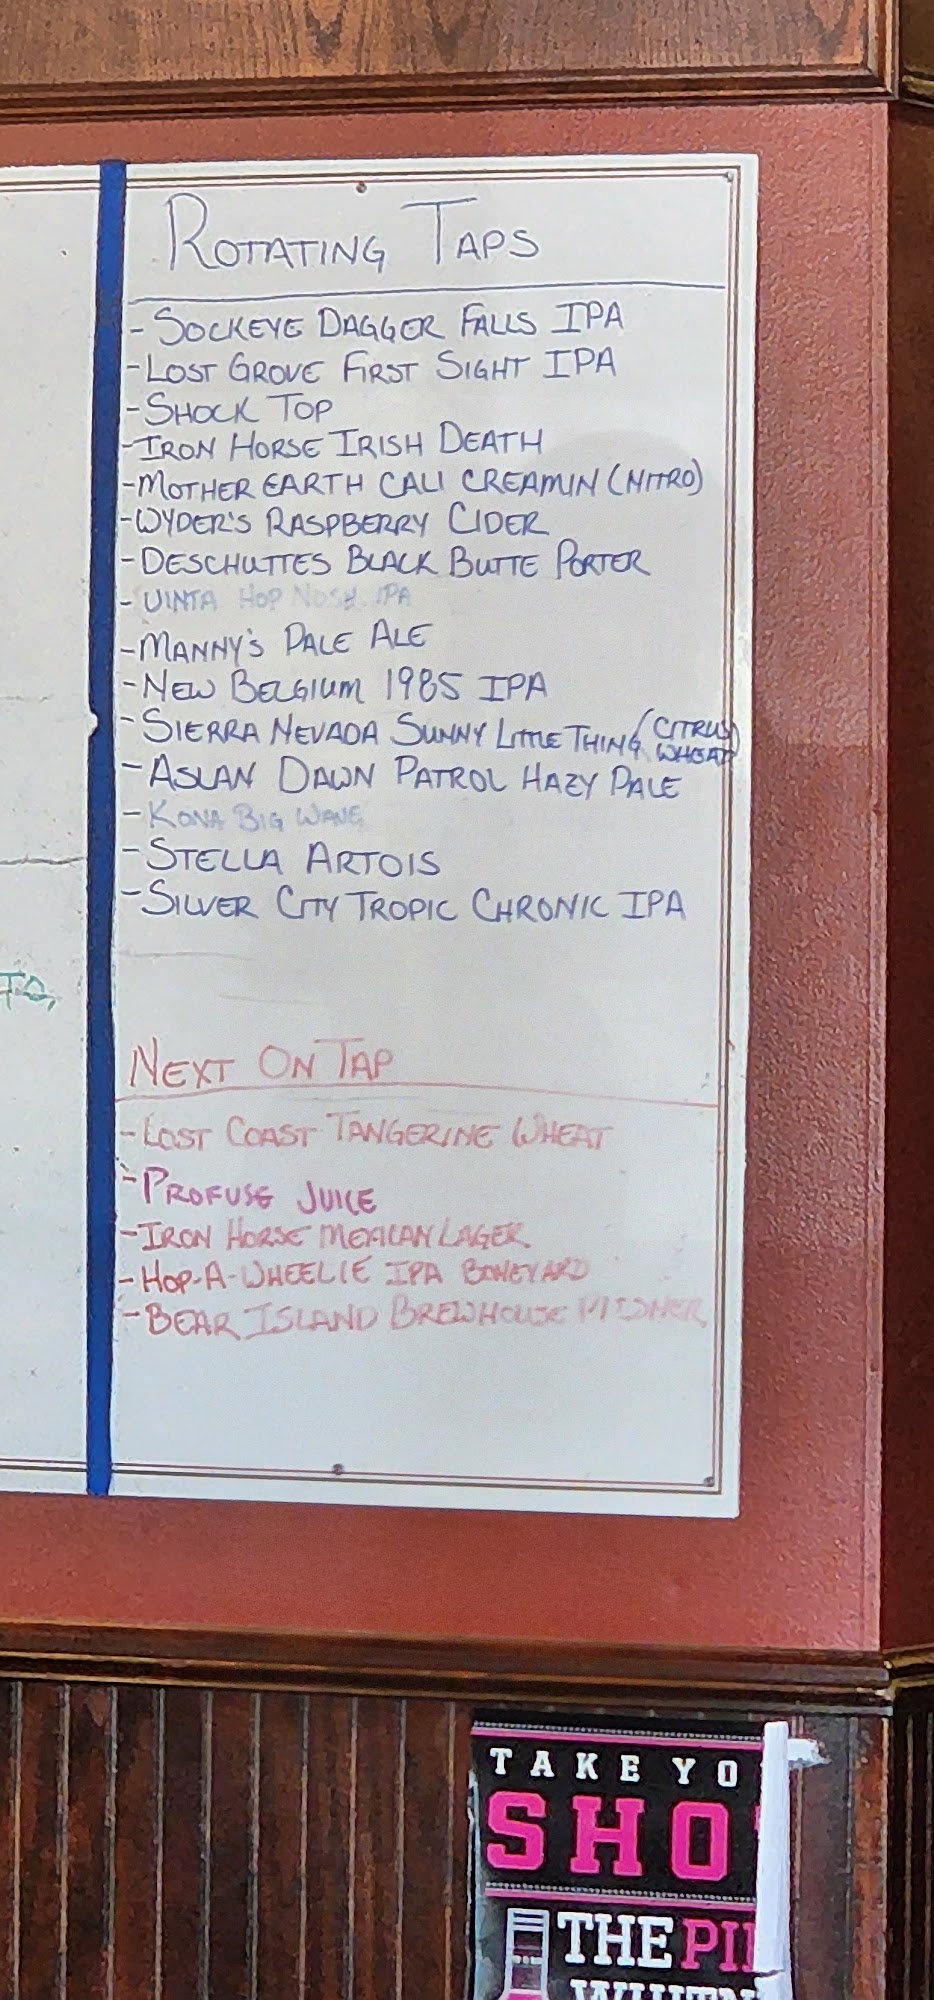 ROTATING TAPS
- SOCKEYE DAGGER FALLS IPA
- LOST GROVE FIRST SIGHT IPA
- SHOCK TOP
- IRON HORSE IRISH DEATH
- MOTHER EARTH CALI CREAMIN (NITRO)
- WYDER'S RASPBERRY CIDER
- DESCHUTTES BLACK BUTTE PORTER
- UINTA HOP NOSH IPA
- MANNY'S PALE ALE
- NEW BELGIUM 1985 IPA
- SIERRA NEVADA SUNNY LITTLE THING (CITRUS WHEAT)
- ASLAN DAWN PATROL HAZY PALE
- KONA BIG WAVE
- STELLA ARTOIS
- SILVER CITY TROPIC CHRONIC IPA
TO,
NEXT ON TAP
- LOST COAST TANGERINE WHEAT
- PROFUSE JUICE
- IRON HORSE MEXICAN LAGER
- HOP-A-WHEELIE IPA BONEYARD
- BEAR ISLAND BREWHOUSE
TAKE YO
SHO
THE PI